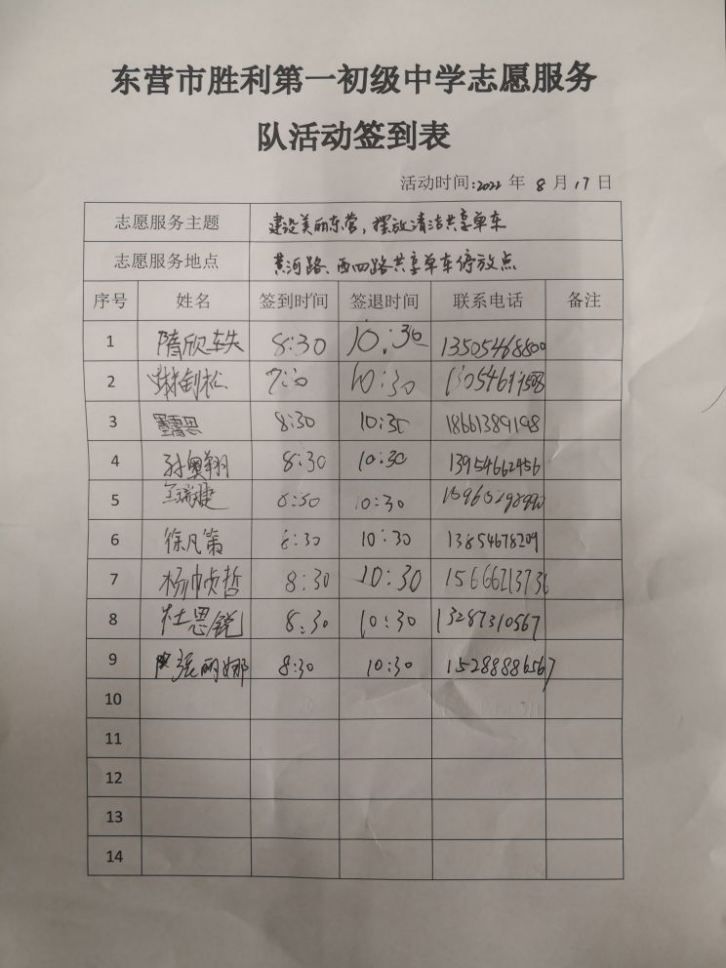 东营市胜利第一初级中学志愿服务
队活动签到表
活动时间:2022 年 8 月 17 日
志愿服务主题 建设美丽东营，摆放清洁共享单车
志愿服务地点 黄河路、西四路共享单车停放点
序号 姓名 签到时间 签退时间 联系电话 备注
1 隋欣轶 8:30 10:30 13505468800
2 10:30
3 8:30 10:30 18661389198
4 孙奥翔 8:30 10:30 13954662456
5 王瑞捷 10:30
6 徐凡第 8:30 10:30 13854678209
7 杨帧哲 8:30 10:30 15666213736
8 杜思锐 8:30 10:30 13287310567
9 张丽娜 8:30 10:30 15288886567
10
11
12
13
14